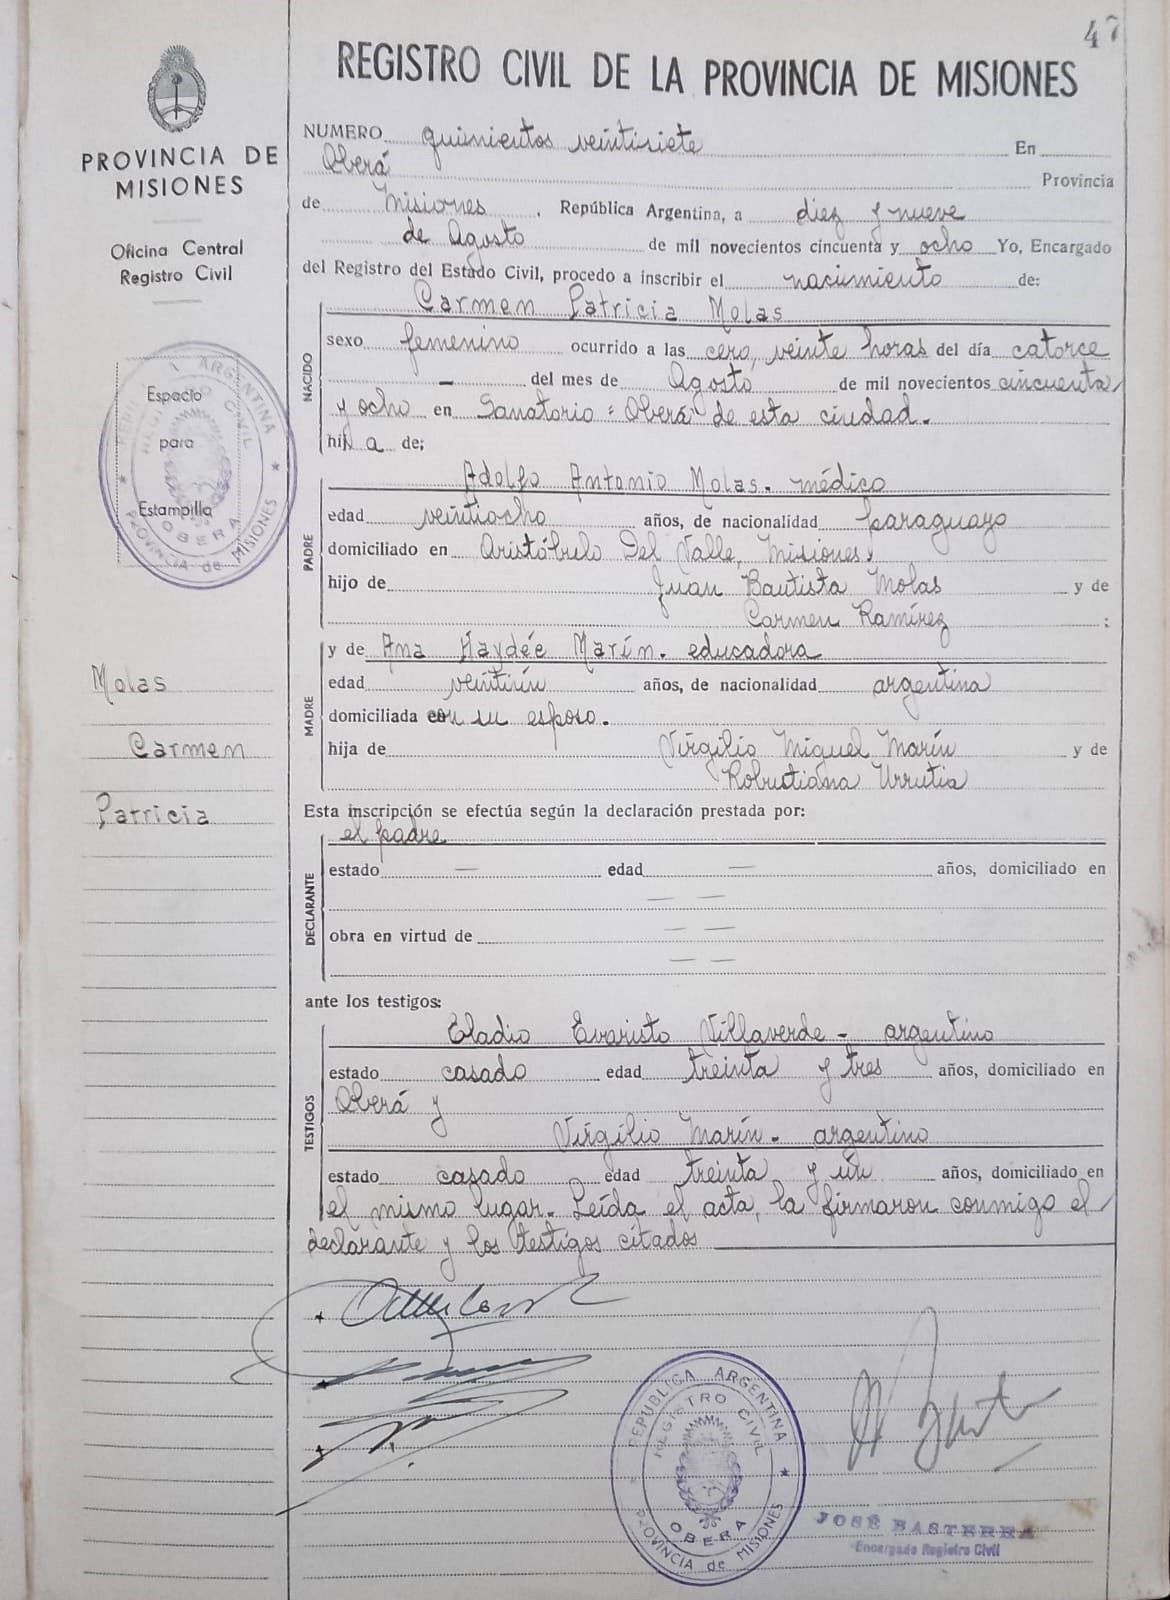 47
REGISTRO CIVIL DE LA PROVINCIA DE MISIONES
PROVINCIA DE
MISIONES
Oficina Central
Registro Civil
Espacio
para
Estampilla
REGISTRO CIVIL
OBERA
PROVINCIA de MISIONES
Molas
Carmen
Patricia
NUMERO quinientos veintisiete En
Oberá Provincia
de Misiones, República Argentina, a diez y nueve
de Agosto de mil novecientos cincuenta y ocho Yo, Encargado
del Registro del Estado Civil, procedo a inscribir el nacimiento de:
NACIDO
Carmen Patricia Molas
sexo femenino ocurrido a las cero, veinte horas del día catorce
— del mes de Agosto de mil novecientos cincuenta
y ocho en Sanatorio "Oberá" de esta ciudad.
hija de;
PADRE
Adolfo Antonio Molas - médico
edad veintiocho años, de nacionalidad paraguayo
domiciliado en Aristóbulo Del Valle, Misiones,
hijo de Juan Bautista Molas y de
Carmen Ramírez ;
MADRE
y de Ana Haydée Marín - educadora
edad veintiún años, de nacionalidad argentina
domiciliada con su esposo.
hija de Virgilio Miguel Marín y de
Robustiana Urrutia
Esta inscripción se efectúa según la declaración prestada por:
DECLARANTE
el padre
estado — edad — años, domiciliado en
— —
obra en virtud de — —
— —
ante los testigos:
TESTIGOS
Eladio Evaristo Villaverde - argentino
estado casado edad treinta y tres años, domiciliado en
Oberá y
Virgilio Marín - argentino
estado casado edad treinta y un años, domiciliado en
el mismo lugar. Leída el acta, la firmaron conmigo el
declarante y los testigos citados
REPUBLICA ARGENTINA
REGISTRO CIVIL
OBERA
PROVINCIA de MISIONES
JOSÉ BASTERRA
Encargado Registro Civil